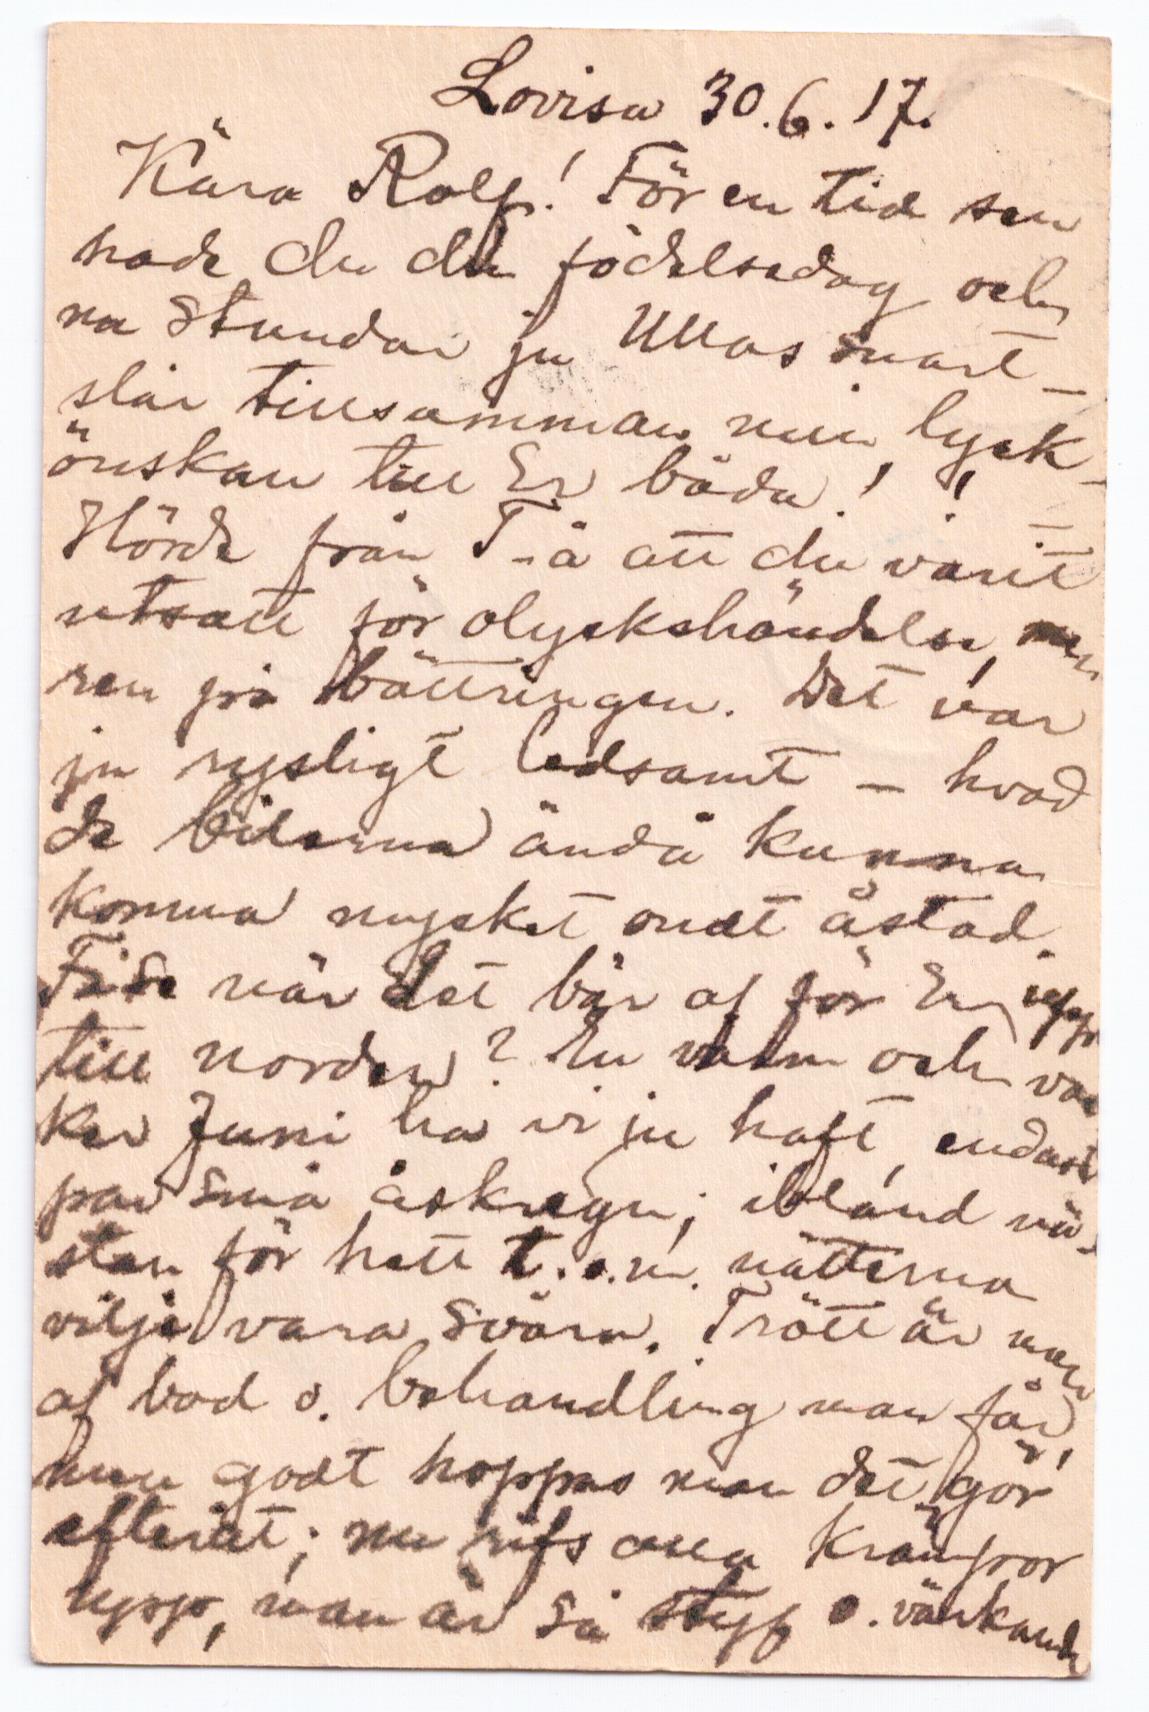 Lovisa 30.6.17.
Kära Rolf! För en tid sen
hade du din födelsedag och
nu stundar ju Ullas snart –
slår tillsamman min lyck-
önskan till Er båda! !
Hörde från T-å att du varit
utsatt för olyckshändelse, men
ren på bättringen. Det var
ju rysligt ledsamt – hvad
de bilerna ändå kunna
komma mycket ondt åstad.
När det bär af för Er upp
till norden? En varm och vac
ker Juni ha vi ju haft, endast
par små åskregn; ibland nä-
stan för hett t.o.m. nätterna
vilja vara svåra. Trött är man
af bad o. behandling man får,
men godt hoppas man det gör
efteråt; nu rifs alla krämpor
upp, man är så styf o. värkande